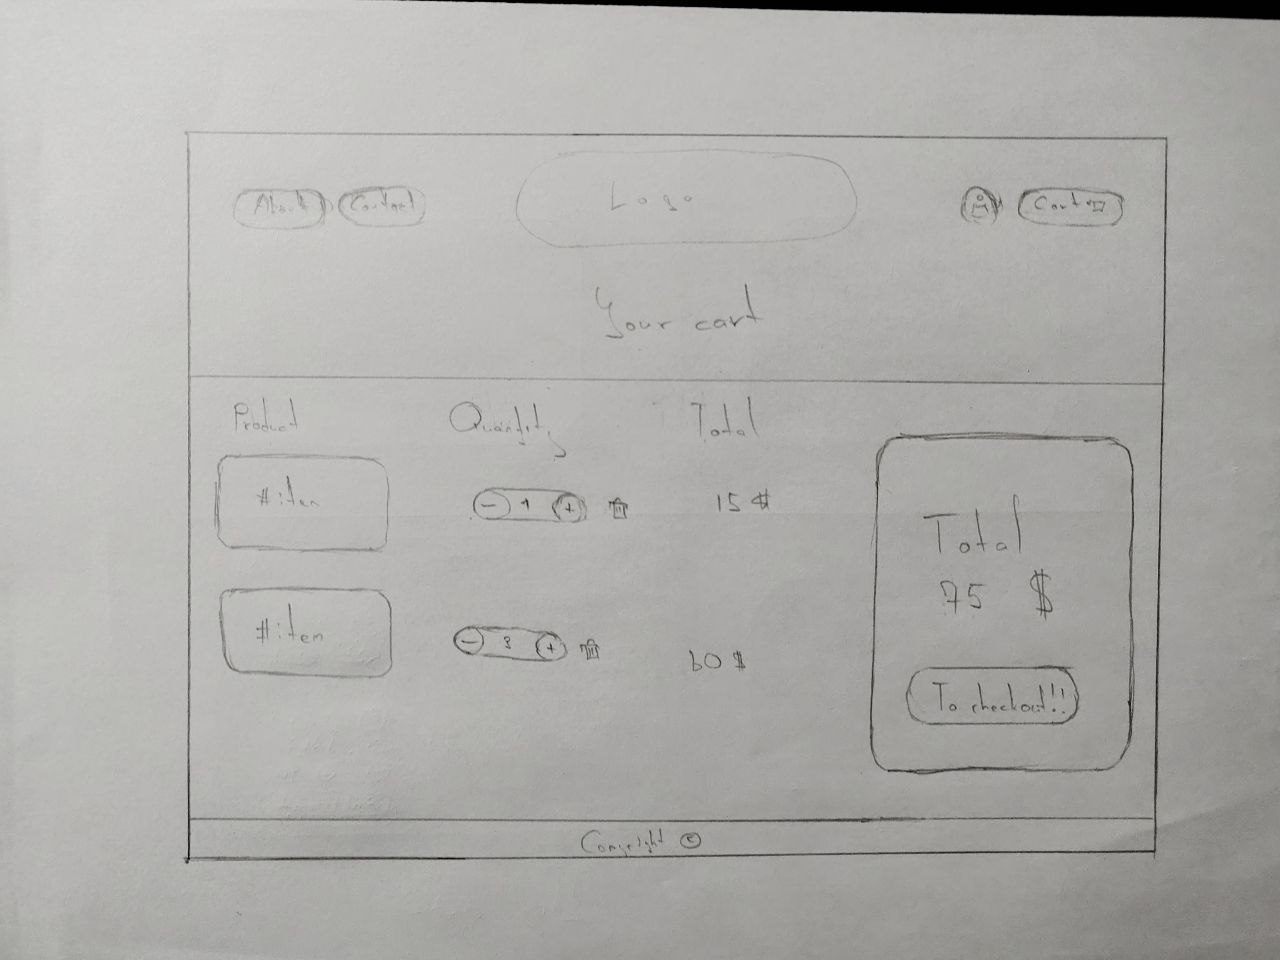 About Contact Logo Cart
Your cart
Product Quantity Total
#item - 1 + 15 $
#item - 3 + 60 $
Total
75 $
To checkout!!
Copyright ©